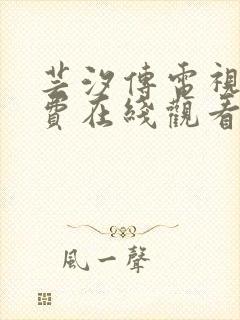 芸汐傳電視
費在綫觀看
風一聲